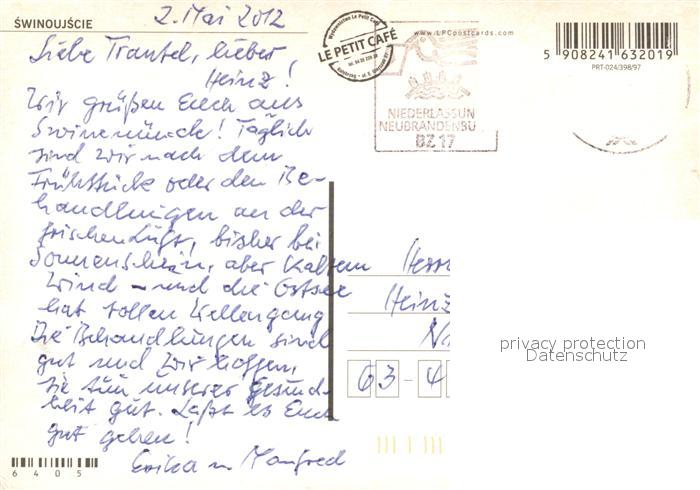 ŚWINOUJŚCIE
2. Mai 2012
Liebe Trautel, lieber
Heinz!
Wir grüßen Euch aus
Swinemünde! Täglich
sind wir nach dem
Frühstück oder den Be-
handlungen an der
frischen Luft, bisher bei
Sonnenschein, aber kaltem
Wind – und die Ostsee
hat tollen Wellengang
Die Behandlungen sind
gut und wir hoffen,
sie tun unserer Gesund-
heit gut. Laßt es Euch
gut gehen!
Erika u Manfred
6405
LE PETIT CAFÉ
www.LPCpostcards.com
5 908241 632019
PRT-024/398/97
NIEDERLASSUN
NEUBRANDENBU
BZ 17
Herrn
Heinz
63-4
privacy protection
Datenschutz